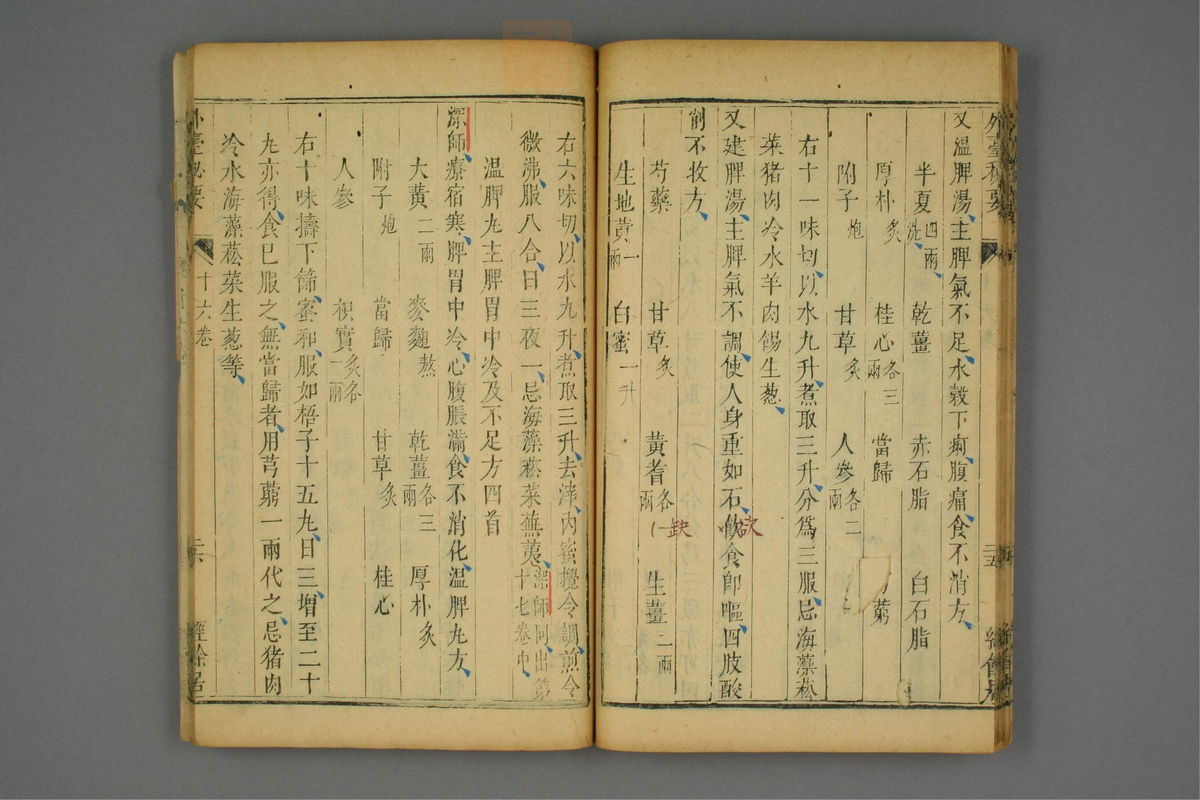 又溫脾湯主脾氣不足水穀下痢腹痛食不消方
半夏四兩洗 乾薑 赤石脂 白石脂
厚朴炙 桂心各三兩 當歸 藭
附子炮 甘草炙 人參各二兩
右十一味切以水九升煮取三升分爲三服忌海藻菘
菜猪肉冷水羊肉餳生葱
又建脾湯主脾氣不調使人身重如石飲食卽嘔四肢酸
削不收方
欲
缺
芍藥 甘草炙 黃耆各兩 生薑二兩
生地黃一兩 白蜜一升
右六味切以水九升煮取三升去滓內蜜攪令調煎令
微沸服八合日三夜一忌海藻菘菜蕪荑深師同出第十七卷中
溫脾丸主脾胃中冷及不足方四首
深師療宿寒脾胃中冷心腹脹滿食不消化溫脾丸方
大黃二兩 麥麴熬 乾薑各三兩 厚朴炙
附子炮 當歸 甘草炙 桂心
人參 枳實炙各一兩
右十味擣下篩蜜和服如梧子十五丸日三增至二十
丸亦得食已服之無當歸者用芎藭一兩代之忌猪肉
冷水海藻菘菜生葱等
外臺秘要
十六卷
二六
經餘居